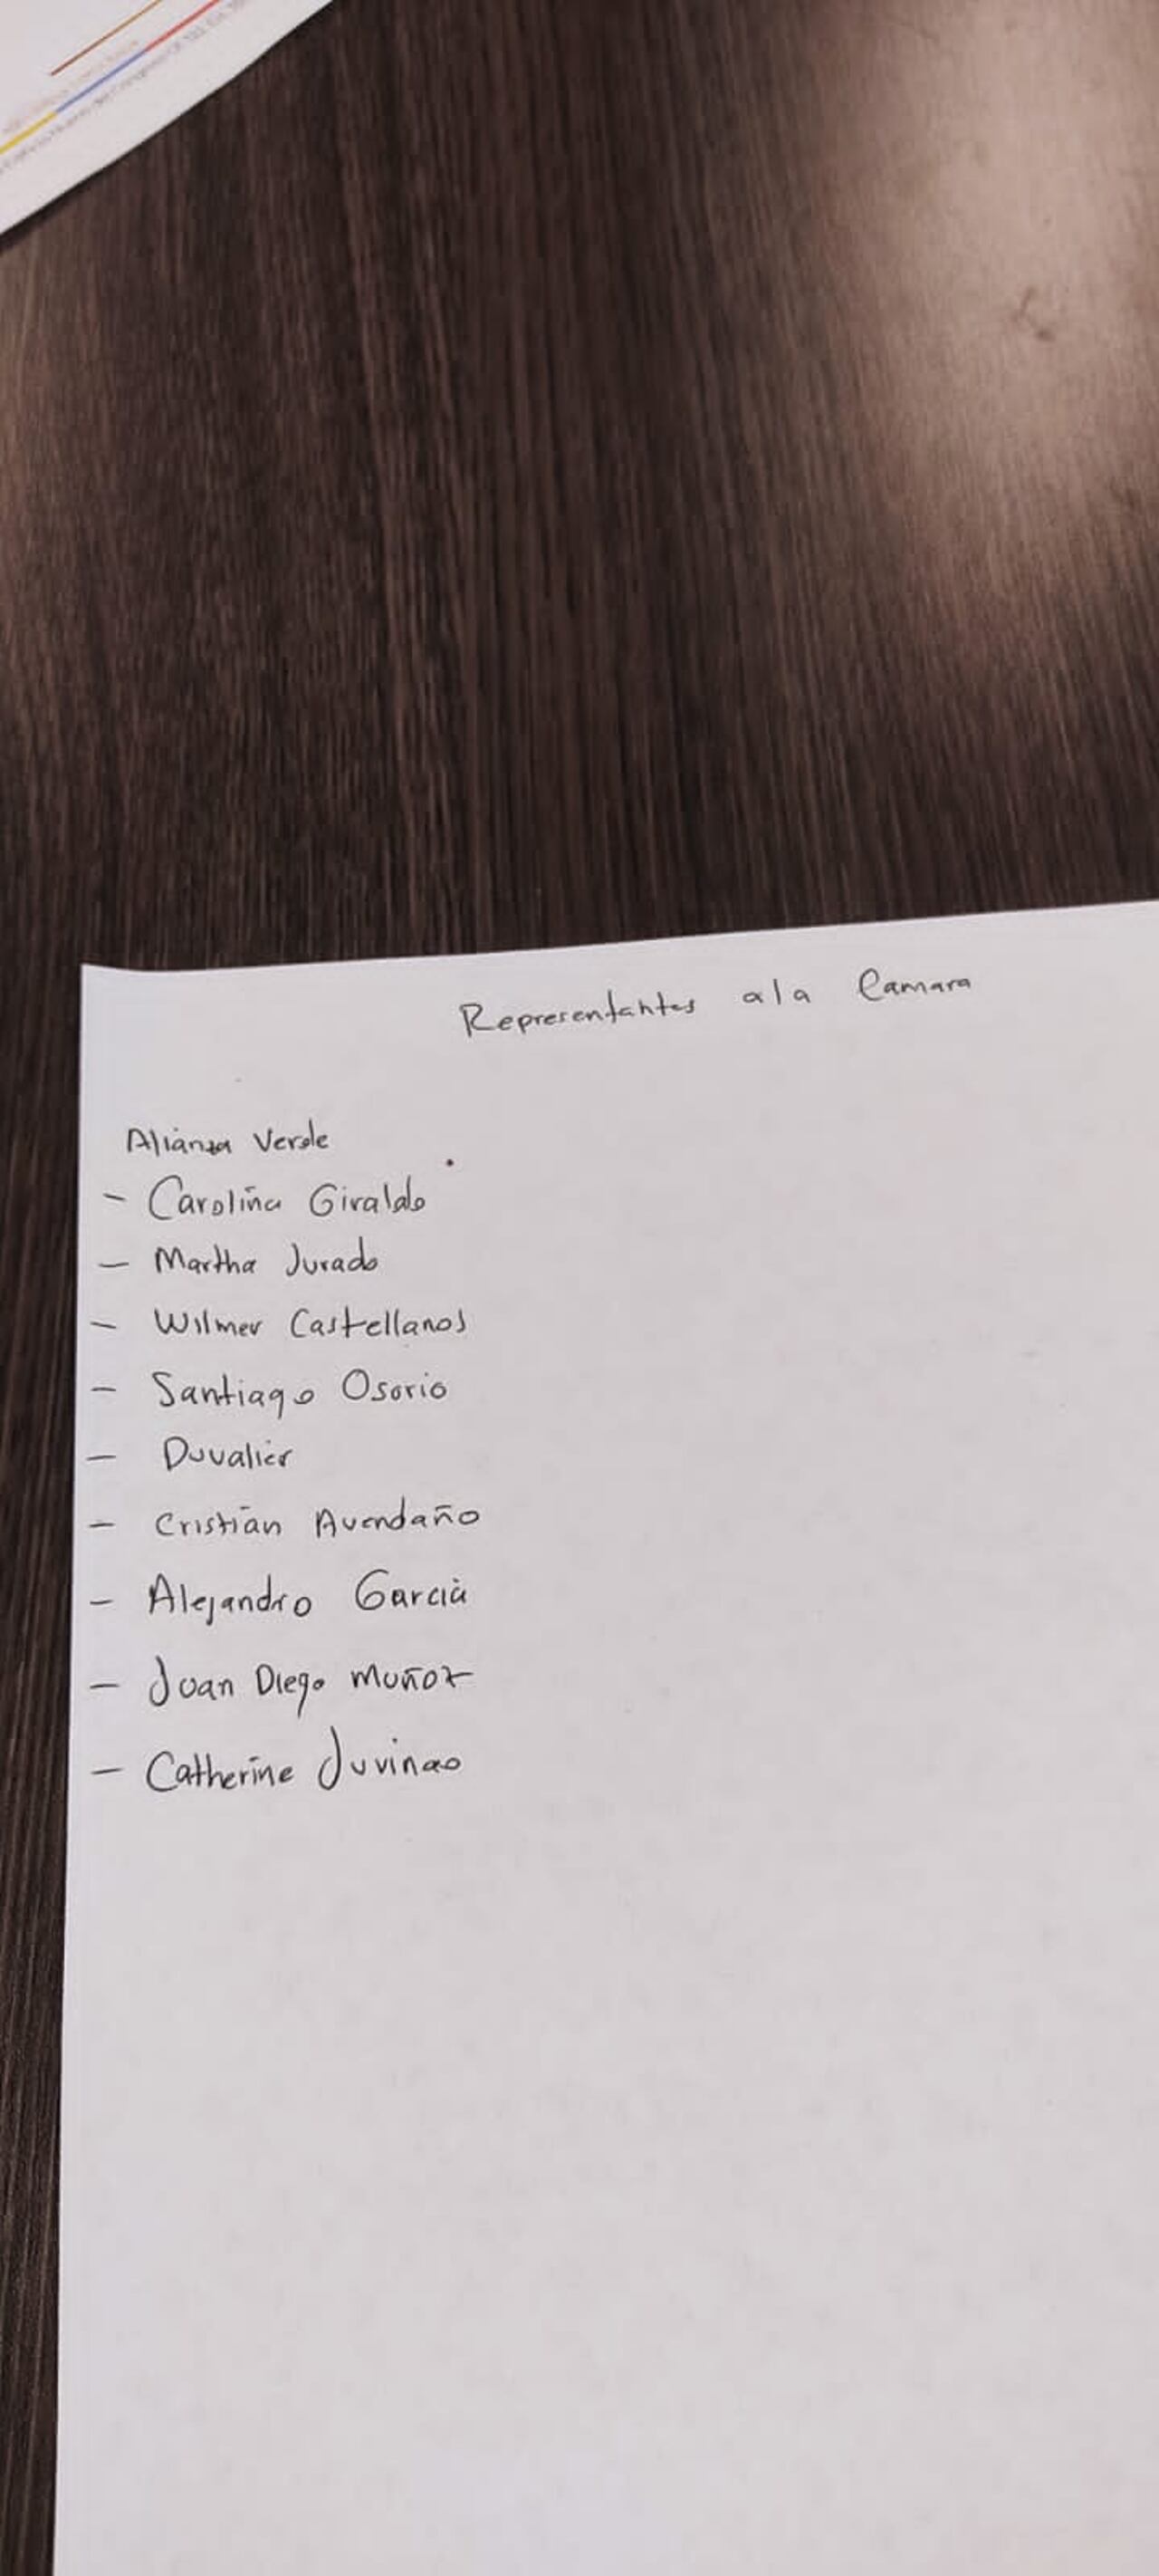 Representantes a la Camara
Alianza Verde
- Carolina Giraldo
- Martha Jurado
- Wilmer Castellanos
- Santiago Osorio
- Duvalier
- Cristian Avendaño
- Alejandro Garcia
- Juan Diego Muñoz
- Catherine Juvinao